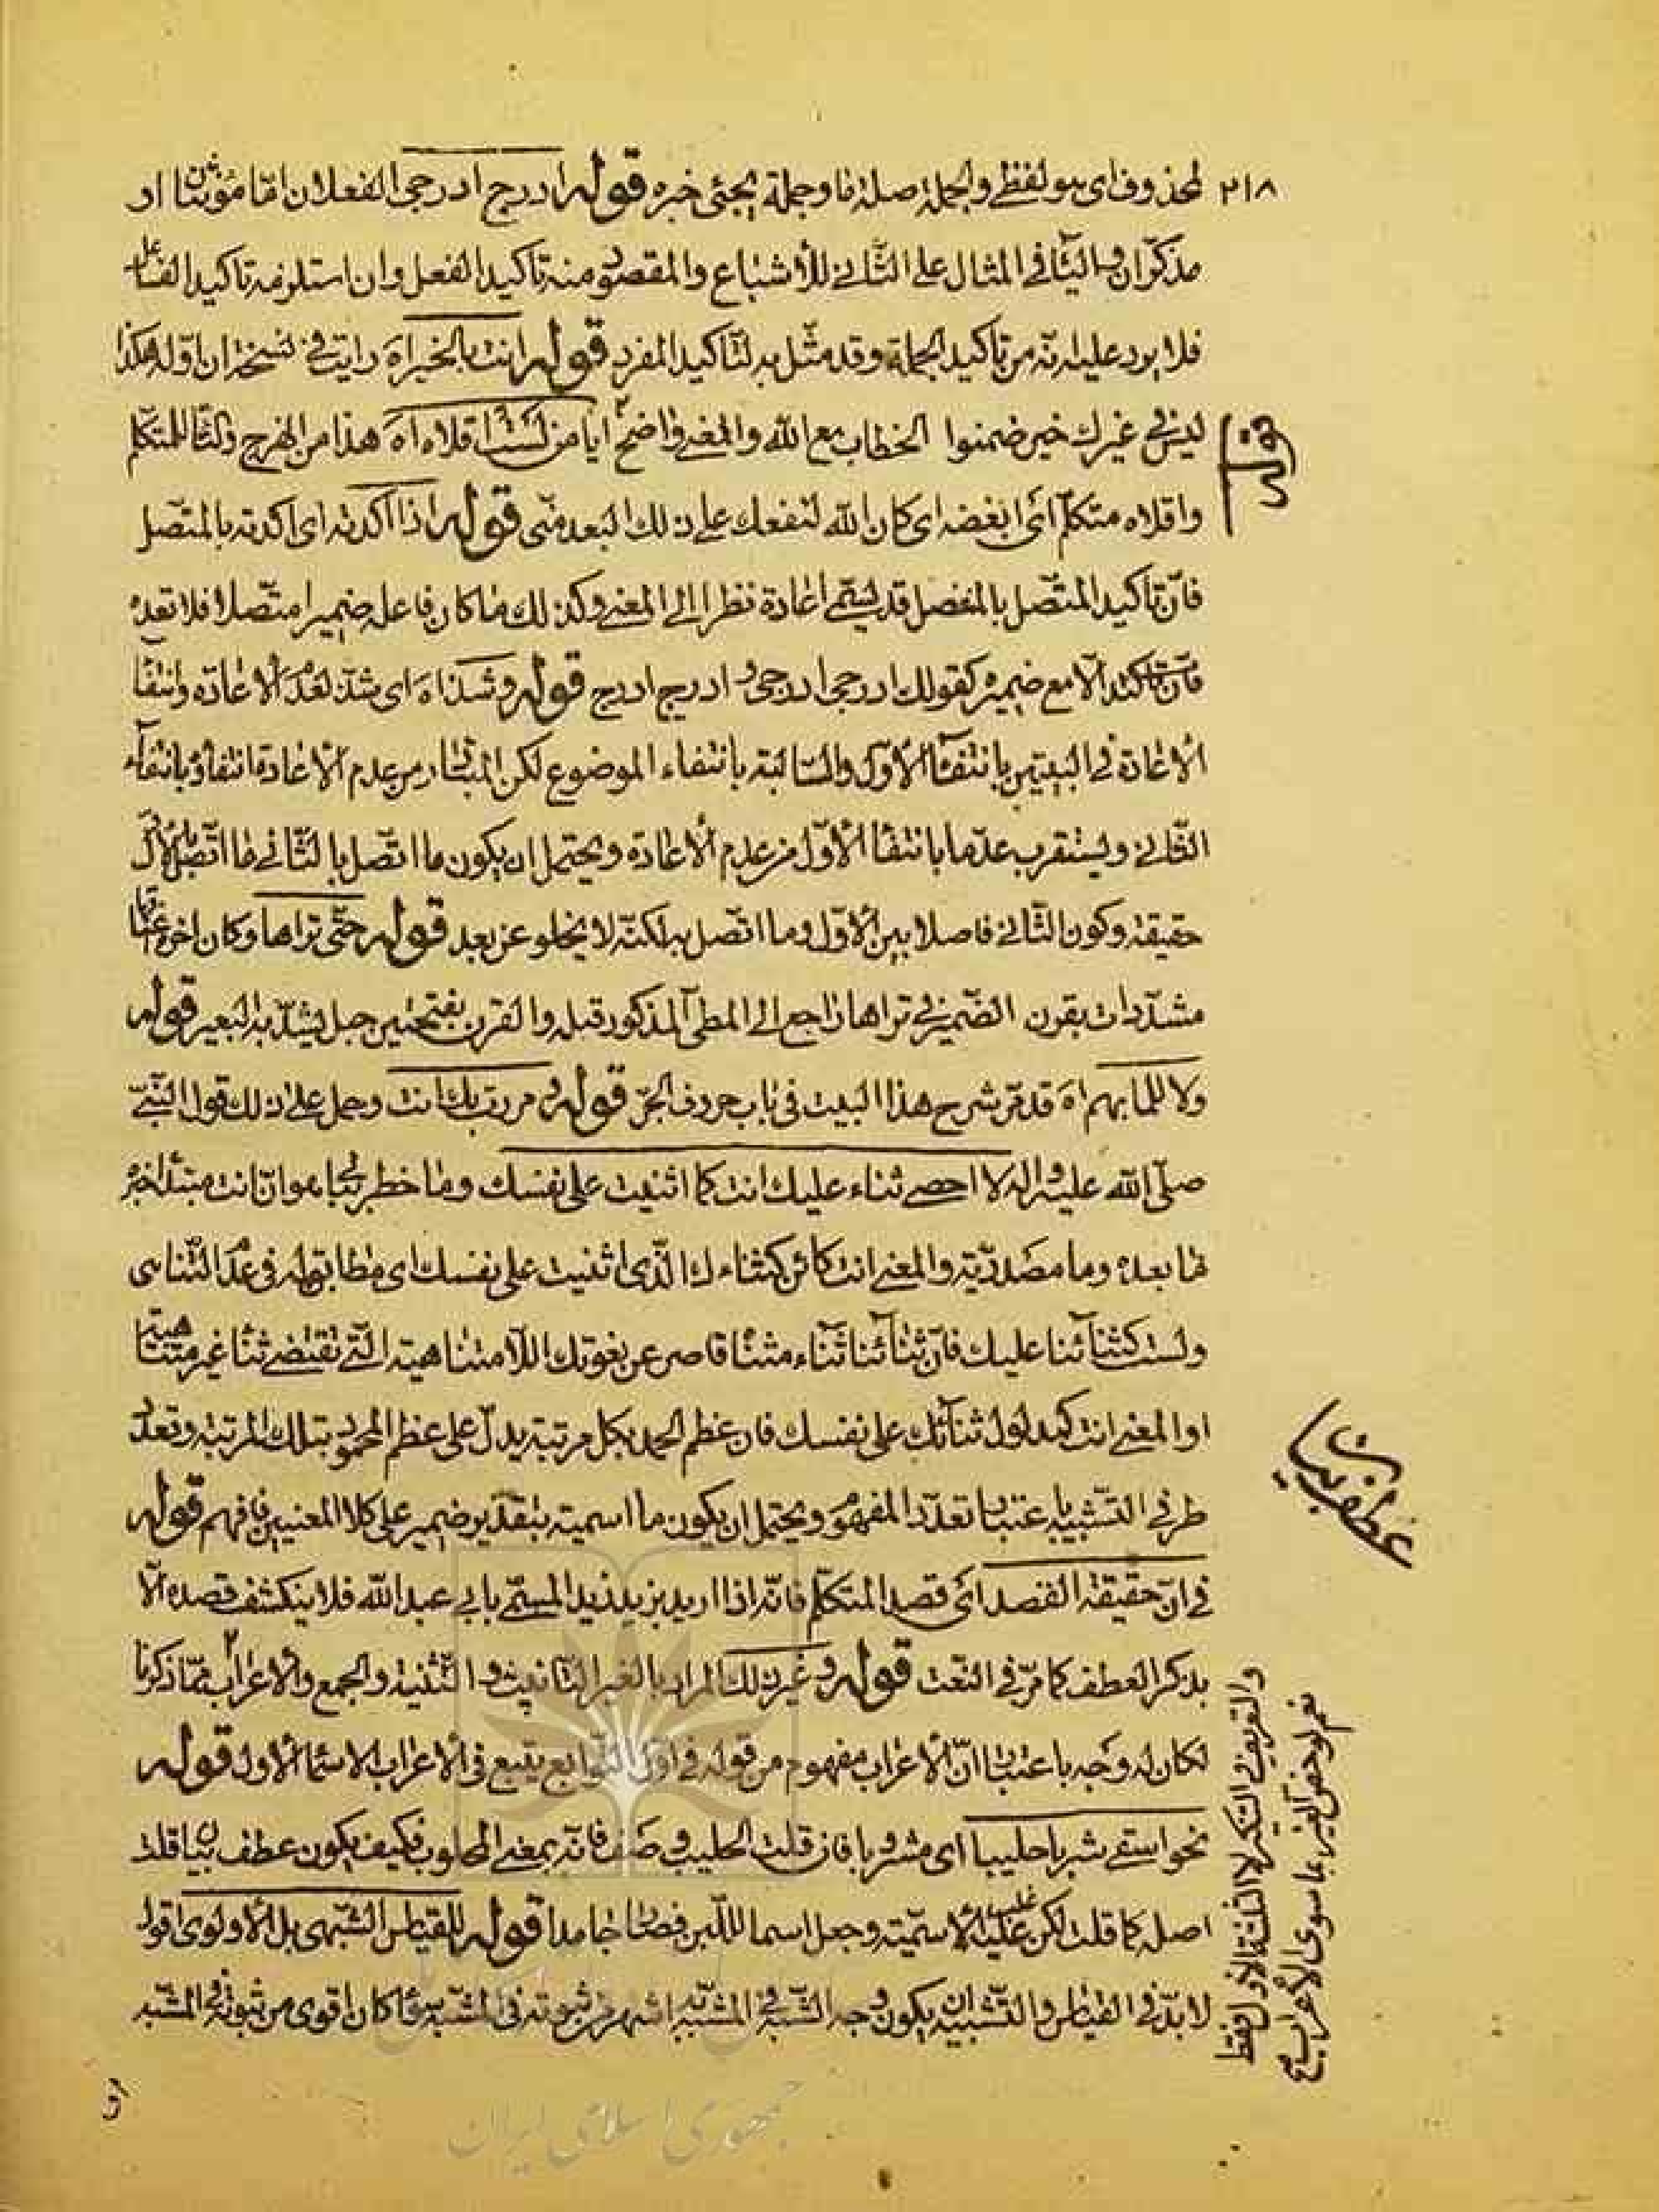 ٢١٨ لمحذوف اى هو لفظ والجملة صلة ما وجملة يجئى خبره قوله ادرج ادرجى الفعلان امّا مؤنثان او
مذكّران والياء فى المثال على الثّانى للأشباع والمقصود منه تاكيد الفعل وان استلزمه تاكيد الفاعل
فلا يرد عليه انّه من تاكيد الجملة وقد مثّل به لتّاكيد المفرد قوله انت بالخير اه رايت فى نسخة ان اوّله هكذا
ليس فى غيرك خير ضمنوا الخطاب مع الله والمعنى واضح ايا من لست اقلاه اه هذا من الهرج ولستا للمتكلم
واقلاه متكلّم اى ابغضه اى كان الله لنفعك على ذلك البعد منّى قوله اذا اكدته اى اكدته بالمتّصل
فانّ تاكيد المتّصل بالمنفصل قد يسمّى اعادة نظرا الى المعنى وكذلك ما كان فاعله ضميرا متّصلا فلا تعده
فى تاكيد الّا مع ضميره كقولك ادرجى ادرجى و ادرج ادرج قوله وشذ اه اى شذ لعدم الاعادة وانتفاء
الأعادة فى البيتين بانتفاء الأوّل والسّالبة بانتفاء الموضوع لكن المتبادر من عدم الأعادة انتفاؤه بانتفاء
الثّانى ويستقرب عدّها بانتفاء الأوّل من عدم الأعادة ويحتمل ان يكون ما اتّصل بالثّانى ما اتّصل بالأوّل
حقيقة وكون الثّانى فاصلا بين الأوّل وما اتّصل به لكنّه لا يخلو عن بعد قوله حتّى تراها وكان اخره اعناقها
مشدّدات بقرن الضّمير فى تراها راجع الى المطىّ المذكور قبله والقرن بفتحتين حبل يشدّ به البعير قوله
ولا للما بهم اه قد مرّ شرح هذا البيت فى باب حروف الجرّ قوله ومررت بك انت وحمل على ذلك قول النّبىّ
صلّى الله عليه واله لا احصى ثناء عليك انت كما اثنيت على نفسك وما خطر ببالى هو انّ انت مبتدأ خبره
ما بعده وما مصدريّة والمعنى انت كائن كثناءك الّذى اثنيت على نفسك اى مطابق له فى عدم التّناهى
ولست كثنائنا عليك فانّ ثنائنا ثناء مثنا قاصر عن نعوتك اللّامتناهية الّتى تقتضى ثناء غير متناهية
او المعنى انت كمدلول ثنائك على نفسك فان عظم الحمد بكل مرتبة يدلّ على عظم المحمود بتلك المرتبة وتعدّد
طرفى التّشبيه باعتبار تعدّد المفهوم ويحتمل ان يكون ما اسميّة بتقدير ضمير على كلا المعنيين فافهم قوله
فى انّ حقيقة القصد اى قصد المتكلّم فانّه اذا اريد بزيد زيد المسمّى بابى عبد الله فلا ينكشف قصده الّا
بذكر العطف كما مرّ فى النّعت قوله وغير ذلك المراد بالغير التّانيث و التّثنية والجمع والاعراب ممّا ذكرنا
لكان له وجه باعتبار انّ الأعراب مفهوم من قوله فى اوّل التّوابع يتبع فى الأعراب الاسماء الأول قوله
نحو اسقى شربا حليبا اى مشروبا فان قلت الحليب وصف فانّه بمعنى المحلوب فكيف يكون عطف بيان قلت
اصله كما قلت لكن غلب عليه الأسميّة وجعل اسما لللّبن فصار جامدا قوله للقياس الشّبهى بل الأولوى اقول
لا بدّ فى القياس والتّشبيه ان يكون وجه الشّبه فى المشبّه به اشهر من ثبوته فى المشبّه سواء كان اقوى من ثبوته فى المشبه
قوله
عطف بيان
والتعريف والتنكير لا الثلثة الاول فقط
نعم لو خصّ الغير بما سوى الأعراب
جمهورى اسلامى ايران